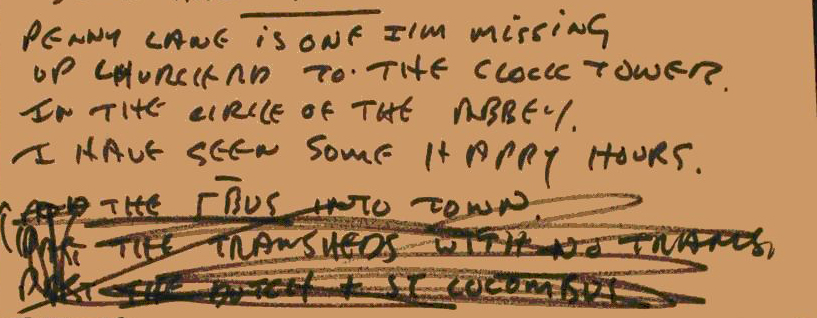 PENNY LANE IS ONE I'M MISSING
UP CHURCH RD TO THE CLOCK TOWER.
IN THE CIRCLE OF THE ABBEY.
I HAVE SEEN SOME HAPPY HOURS.
THE 5 BUS INTO TOWN.
THE TRAMSHEDS WITH NO TRAMS,
PAST THE DUTCH + ST COLOMBUS